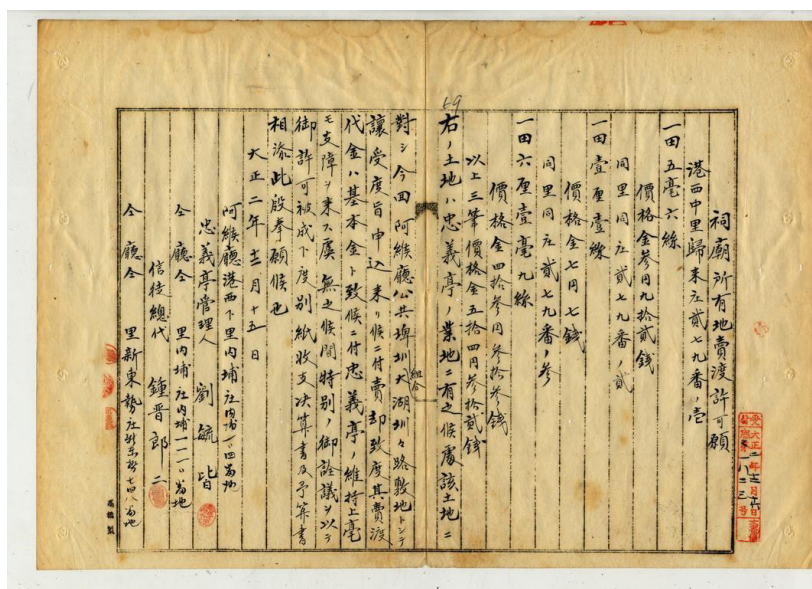 59
祠廟所有地賣渡許可願
港西中里歸來庄貳七九番ノ壱
一田五毫六絲
價格金參円九拾貳錢
同里同庄貳七九番ノ貳
一田壹厘壹絲
價格金七円七錢
同里同庄貳七九番ノ參
一田六厘壹毫九絲
價格金四拾參円參拾參錢
以上三筆價格金五拾四円參拾貳錢
右ノ土地ハ忠義亭ノ業地ニ有之候處該土地ニ
對シ今回阿緱廳公共埤圳大湖圳々路敷地トシテ
組合
讓受度旨申込來リ候ニ付賣却致度其賣渡
代金ハ基本金ト致候ニ付忠義亭ノ維持上毫
モ支障ヲ来ス虞無之候間特別ノ御詮議ヲ以テ
御許可被成下度別紙收支決算書及予算書
相添此段奉願候也
大正二年十二月十五日
阿緱廳港西下里内埔庄内埔一〇四番地
忠義亭管理人 劉毓皆
仝廳仝 里内埔庄内埔一一一番地
信徒總代 鍾晋郎
仝廳仝 里新東勢庄新東勢七四八番地
大正二年十二月
一八二三号